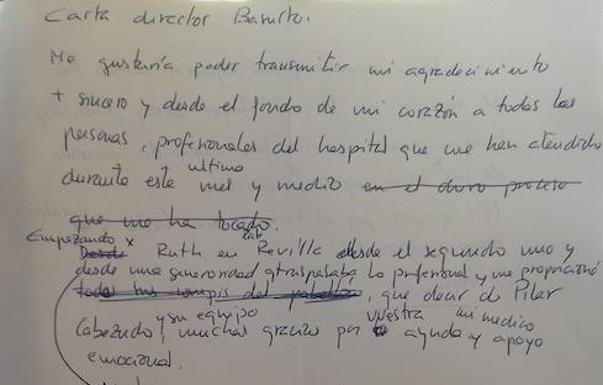 Carta director Basurto.
Me gustaría poder transmitir mi agradecimiento
+ sincero y desde el fondo de mi corazón a todas las
personas, profesionales del hospital que me han atendido
durante este ultimo mes y medio en el duro proceso
que me ha tocado.
Empezando x Ruth en Revilla desde el segundo uno y
desde una generosidad q traspasaba lo profesional y me proporcionó
todos mis compis del pabellón, que decir de Pilar
Cabezudo y su equipo, muchas gracias por vuestra ayuda y apoyo mi medico
emocional.